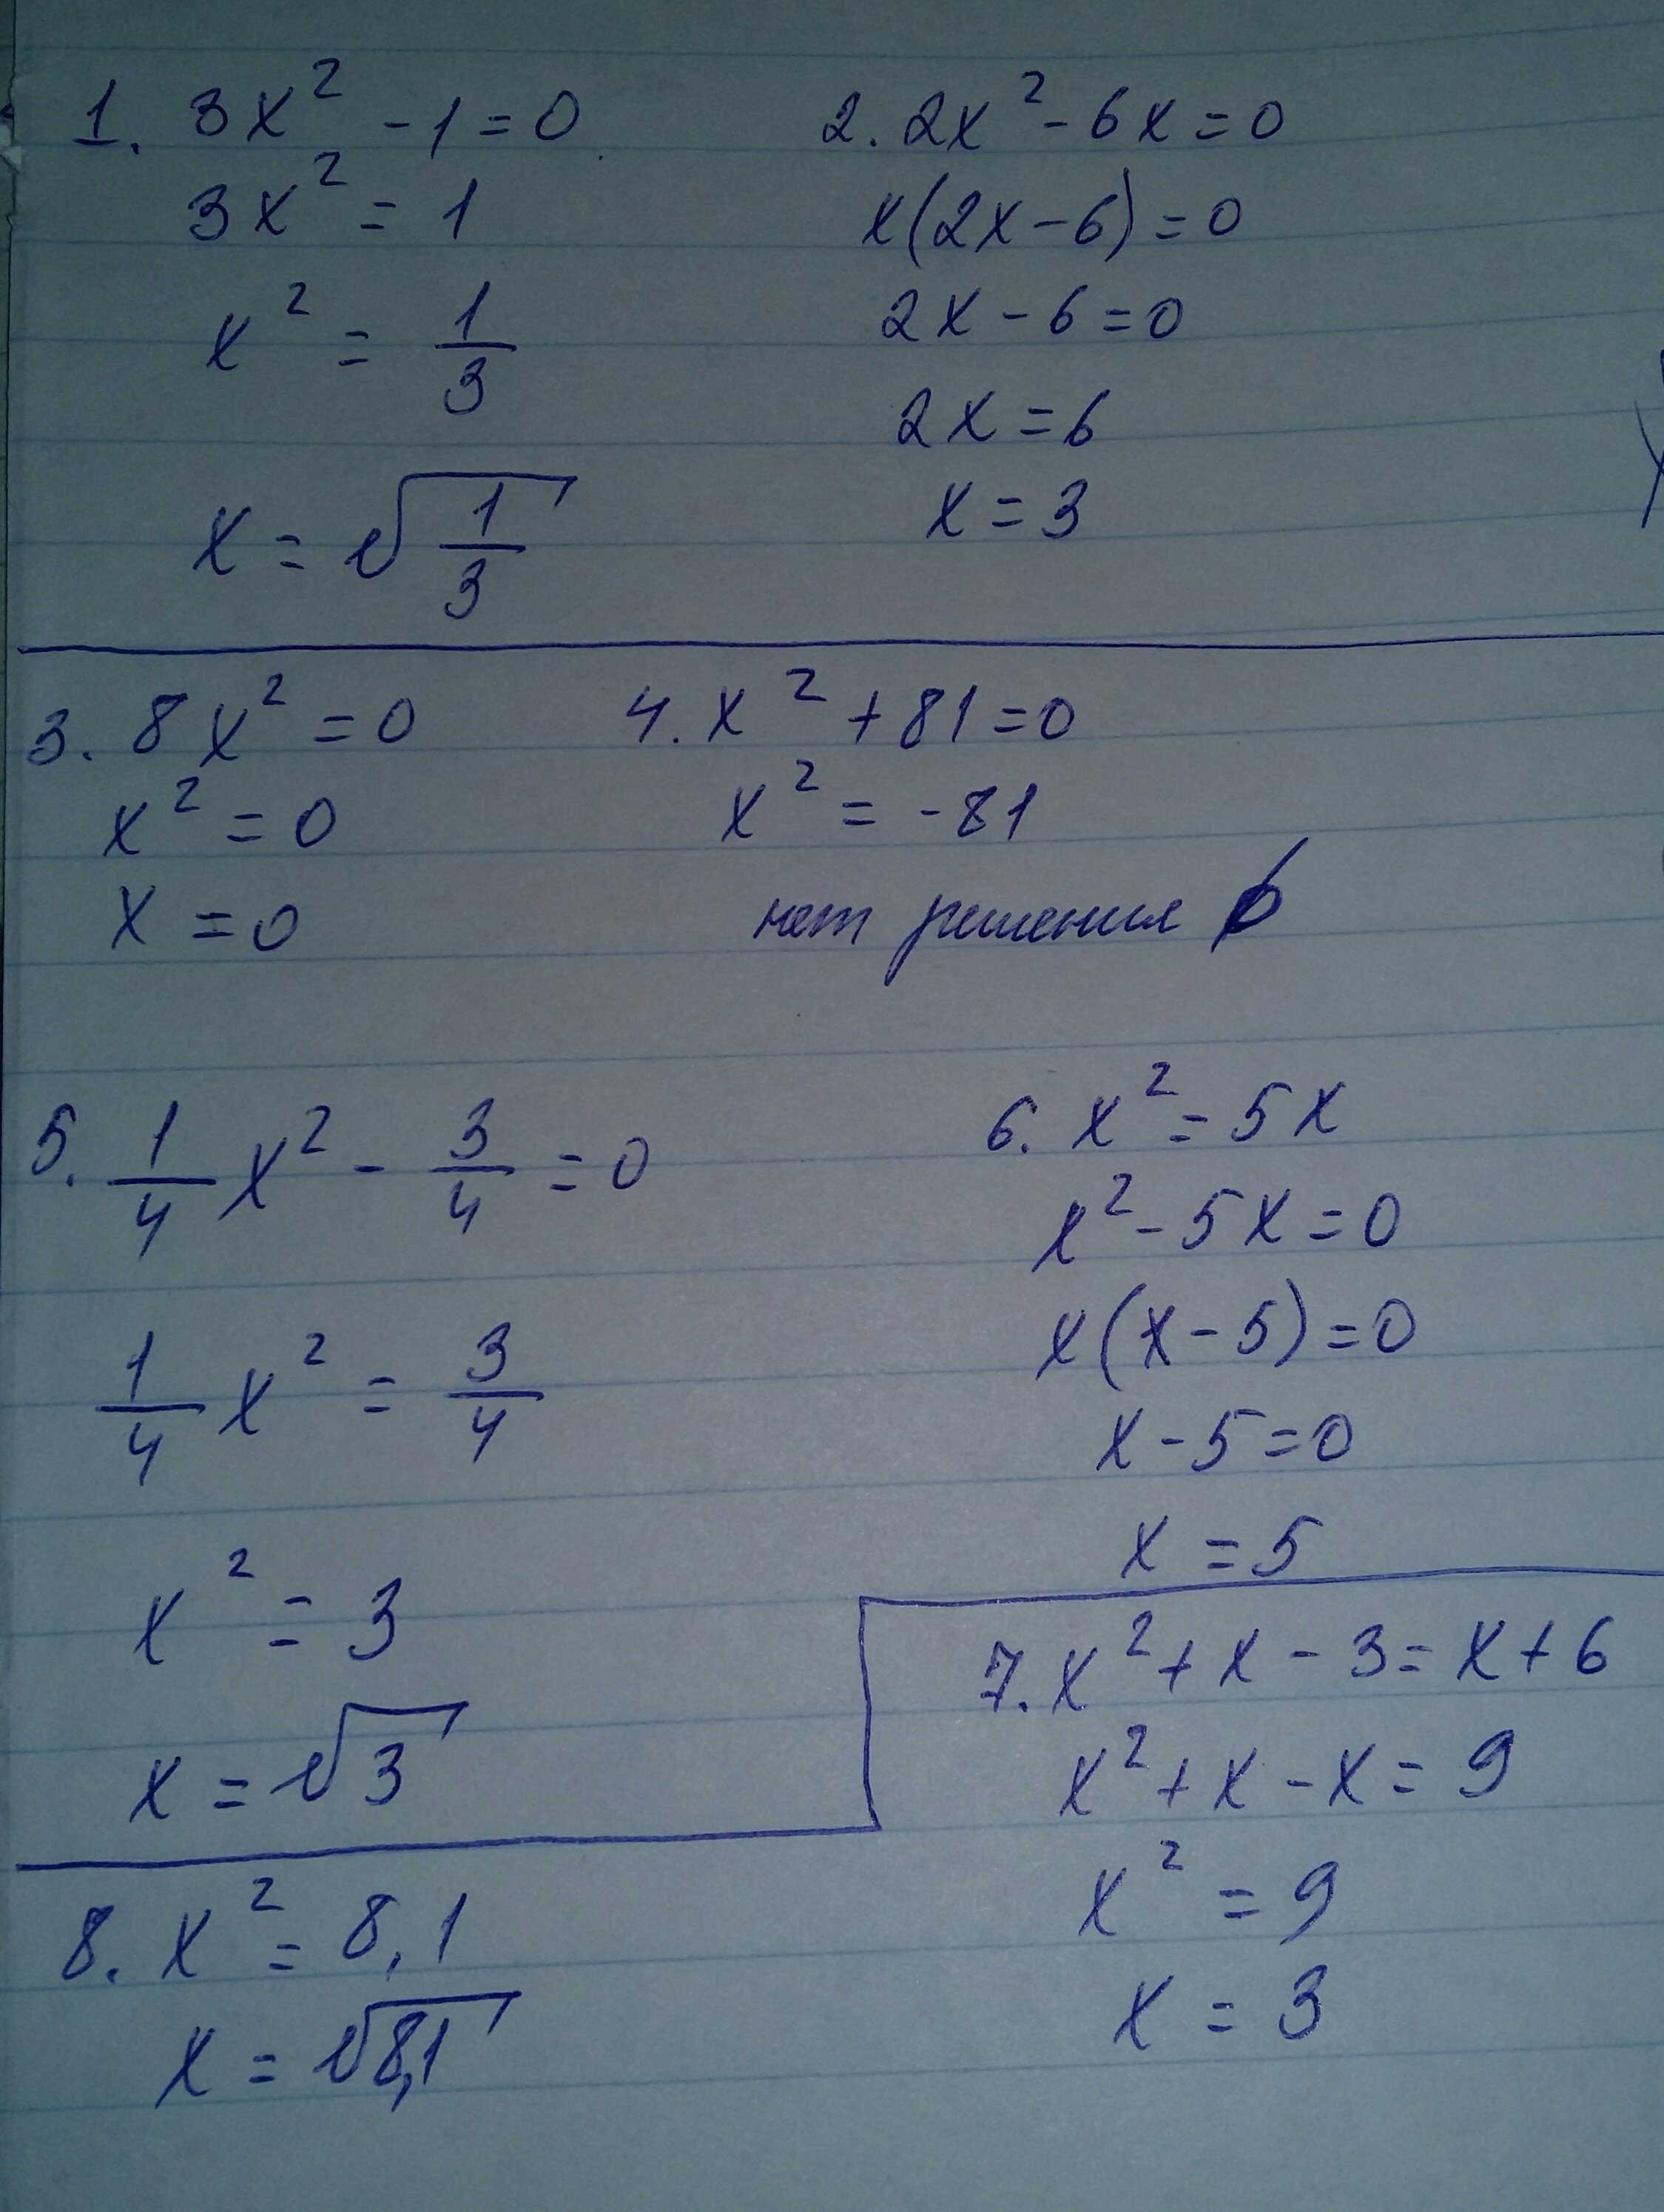 1. 3x² - 1 = 0
3x² = 1
x² = 1/3
x = √(1/3)
2. 2x² - 6x = 0
x(2x - 6) = 0
2x - 6 = 0
2x = 6
x = 3
3. 8x² = 0
x² = 0
x = 0
4. x² + 81 = 0
x² = -81
нет решения
5. 1/4 x² - 3/4 = 0
1/4 x² = 3/4
x² = 3
x = √3
6. x² = 5x
x² - 5x = 0
x(x - 5) = 0
x - 5 = 0
x = 5
7. x² + x - 3 = x + 6
x² + x - x = 9
x² = 9
x = 3
8. x² = 8,1
x = √8,1